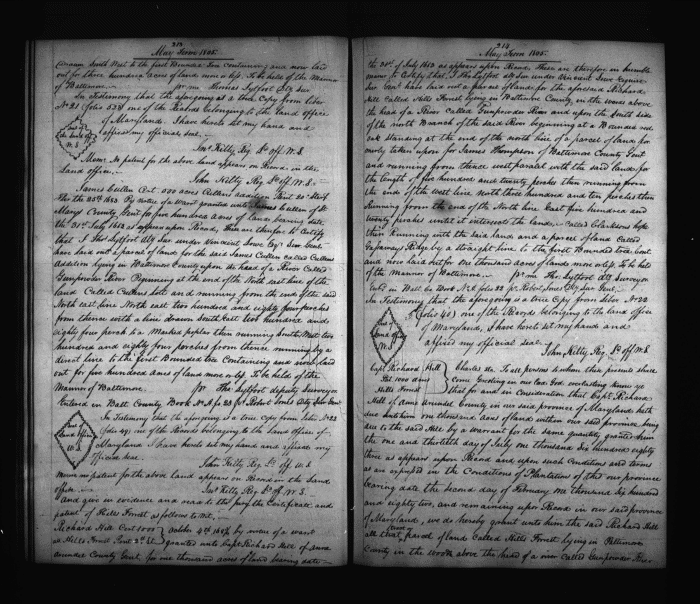 213
May Term 1805.
South West to the first Bounded Tree Containing and now laid
out for three hundred acres of land more or less. To be held of the Mannor
of Baltimore. pr me Thomas Lyffort Dty Sur
In Testimony that the aforegoing is a true Copy from Liber
No 21 (folio 528) one of the Records belonging to the land office
of Maryland. I have hereto set my hand and
affixed my official seal.
the land off
W. S
Jno Kilty Reg Ld off W.S.
Mem: No patent for the above land appears on Record in the
Land office.
John Kilty Reg Ld off. W.S.
James Cullen Cert 500 acres Cullens addition
the 25th 1683 By virtue of a warrt granted unto James Cullen of St
Marys County Gent for five hundred acres of land bearing date
the 31st July 1683 as appears upon Record, These are therefore to Certify
that I Thos Lyffort Dty Sur under Vincent Lowe Esqr Sur Genl
have laid out a parcel of land for the said James Cullen called Cullens
Addition lying in Baltimore County upon the head of a River Called
Gunpowder River Beginning at the end of the North east line of the
land Called Cullens lott and running from the end of the said
North east line North east two hundred and eighty four perches
from thence with a line drawn South East two hundred and
eighty four perch to a Marked poplar then running South West two
hundred and eighty four perches from thence running by a
direct line to the first Bounded tree Containing and now laid
out for five hundred acres of land more or less. To be held of the
Mannor of Baltimore. pr Thos Lyffort deputy surveyor
Entered in Balt County Book No A fo 23 pr Robert Jones Dty Sur Genl
In Testimony that the aforegoing is a true copy from liber No 22
(folio 49) one of the Records belonging to the land office of
Maryland I have hereto set my hand and affixed my
official seal.
Seal of
Land office
W S
John Kilty Reg Ld off W.S
Mem no patent for the above land appears on Record in the land
office. Jno Kilty Reg Ld off W.S.
And give in evidence and read to the jury the Certificate and
patent of Hills Forrest as follows to wit.
Richard Hill Cert 1000
as Hills Forrest
October 4th 1683 by virtue of a warrt
granted unto Capt Richard Hill of anne
arundel County Gent for one thousand acres of land bearing date
214
May Term 1805.
the 31st of July 1683 as appears upon Record. These are therefore in humble
manner to Certify that I Tho Lyffort Dty Sur under Vincent Lowe Esquire
Sur Genl have laid out a parcel of land for the aforesaid Richard
Hill Called Hills Forrest lying in Baltimore County in the woods above the
head of a River Called Gunpowder River and upon the South side
of the north Branch of the said River beginning at a Bounded red
oak standing at the end of the north line of a parcel of land for-
merly taken upon for James Thompson of Baltimore County Gent
and running from thence west paralel with the said land for
the length of five hundred and twenty perches then running from
the end of the West line North three hundred and ten perches then
Running from the end of the North line East five hundred and
twenty perches untill it intersects the land Called Clarksons hope
then Running with the said land and a parcel of land Called
Ridge by a straight line to the first Bounded tree Cont
and now laid out for one thousand acres of land more or less. To be held
of the Mannor of Baltimore. pr me Tho Lyffort Dty Surveyor
Entd in Balt Co Book No A folio 22 pr Robert Jones Dty Sur Genl
In Testimony that the aforegoing is a true Copy from Liber No 22
(folio 40) one of the Records belonging to the land office
of Maryland, I have hereto set my hand and
affixed my official seal.
Land off
W S
John Kilty Reg Ld off W.S
Capt Richard Hill
Pat 1000 acres
Hills Forrest
Charles &c To all persons to whom these presents shall
Come Greeting in our Lord God everlasting know ye
that for and in Consideration that Capt Richard
Hill of Anne Arundel County in our said province of Maryland hath
due unto him one thousand acres of land within our said province being
due to the said Hill by a warrant for the same quantity granted him
the one and thirtieth day of July one thousand six hundred eighty
three as appears upon Record and upon such Conditions and terms
as are expressed in the Conditions of Plantation of this our province
bearing date the second day of February one thousand six hundred
and eighty two, and remaining upon Record in our said province
of Maryland, we do hereby grant unto him the said Richard Hill
all that parcel of land Called Hills Forrest lying in Baltimore
County in the woods above the head of a river Called Gunpowder River